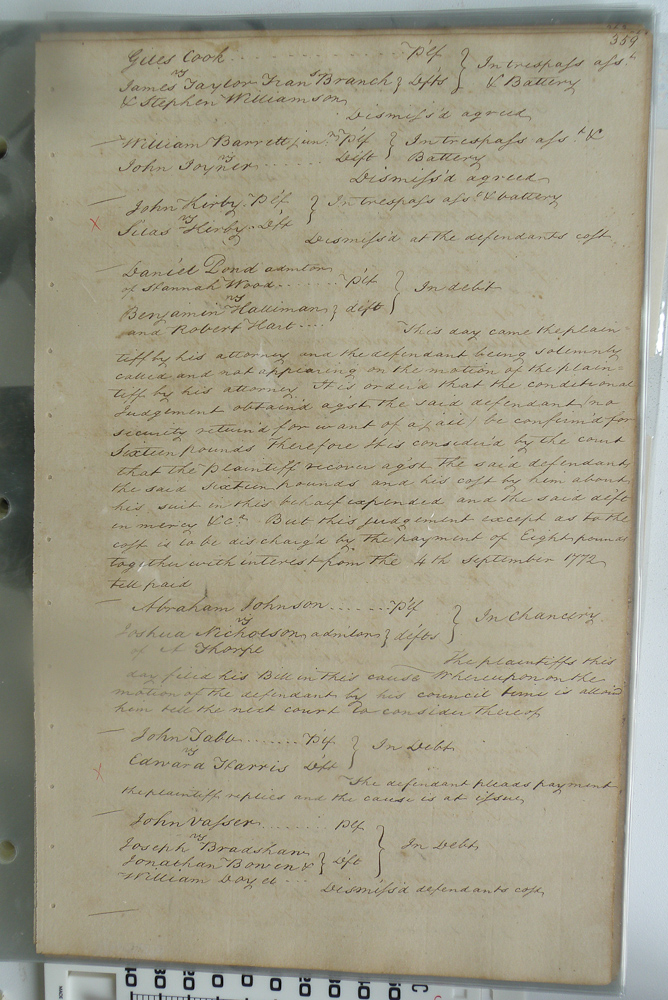 359
Giles Cook . . . . . . . . . . . . . Plf } In trespass asst
vs
James Taylor Frans Branch } Defts & Battery
& Stephen Williamson
Dismiss'd agreed
William Barrett junr Plf } In trespass asst &
vs
John Joyner . . . . . . Deft Battery
Dismiss'd agreed
John Kirby Plf } In trespass asst & battery
vs
Silas Kirby Dft
Dismiss'd at the defendants cost
Daniel Pond admtor
of Hannah Wood . . . . . . . Plf } In debt
vs
Benjamin Halliman } deft
and Robert Hart . . . .
This day came the plain
tiff by his attorney and the defendant being solemnly
called and not appearing on the motion of the plain=
tiff by his attorney It is order'd that the conditional
Judgement obtain'd agst the said defendant (no
security return'd for want of a jail) be confirm'd for
Sixteen pounds Therefore It is consider'd by the court
that the plaintiff recover agst the said defendant
the said sixteen pounds and his cost by him about
his suit in this behalf expended and the said deft
in mercy &ca. But this judgement except as to the
cost is to be discharg'd by the payment of Eight pounds
together with interest from the 4th September 1772
till paid
Abraham Johnson . . . . . . . Plf } In Chancery
vs
Joshua Nicholson admtors } defts
of A Thorpe
The plaintiffs this
day filed his Bill in this cause Whereupon on the
motion of the defendant by his council time is allow'd
him till the next court to consider thereof
John Tabb . . . . . . . Plf } In Debt
vs
Edward Harris Dft
The defendant pleads payment
the plaintiff replies and the cause is at issue
John Vasser . . . . . . . . . Plf } In Debt
vs
Joseph Bradshaw
Jonathan Bowen & } Dft
William . . .
Dismiss'd defendants cost